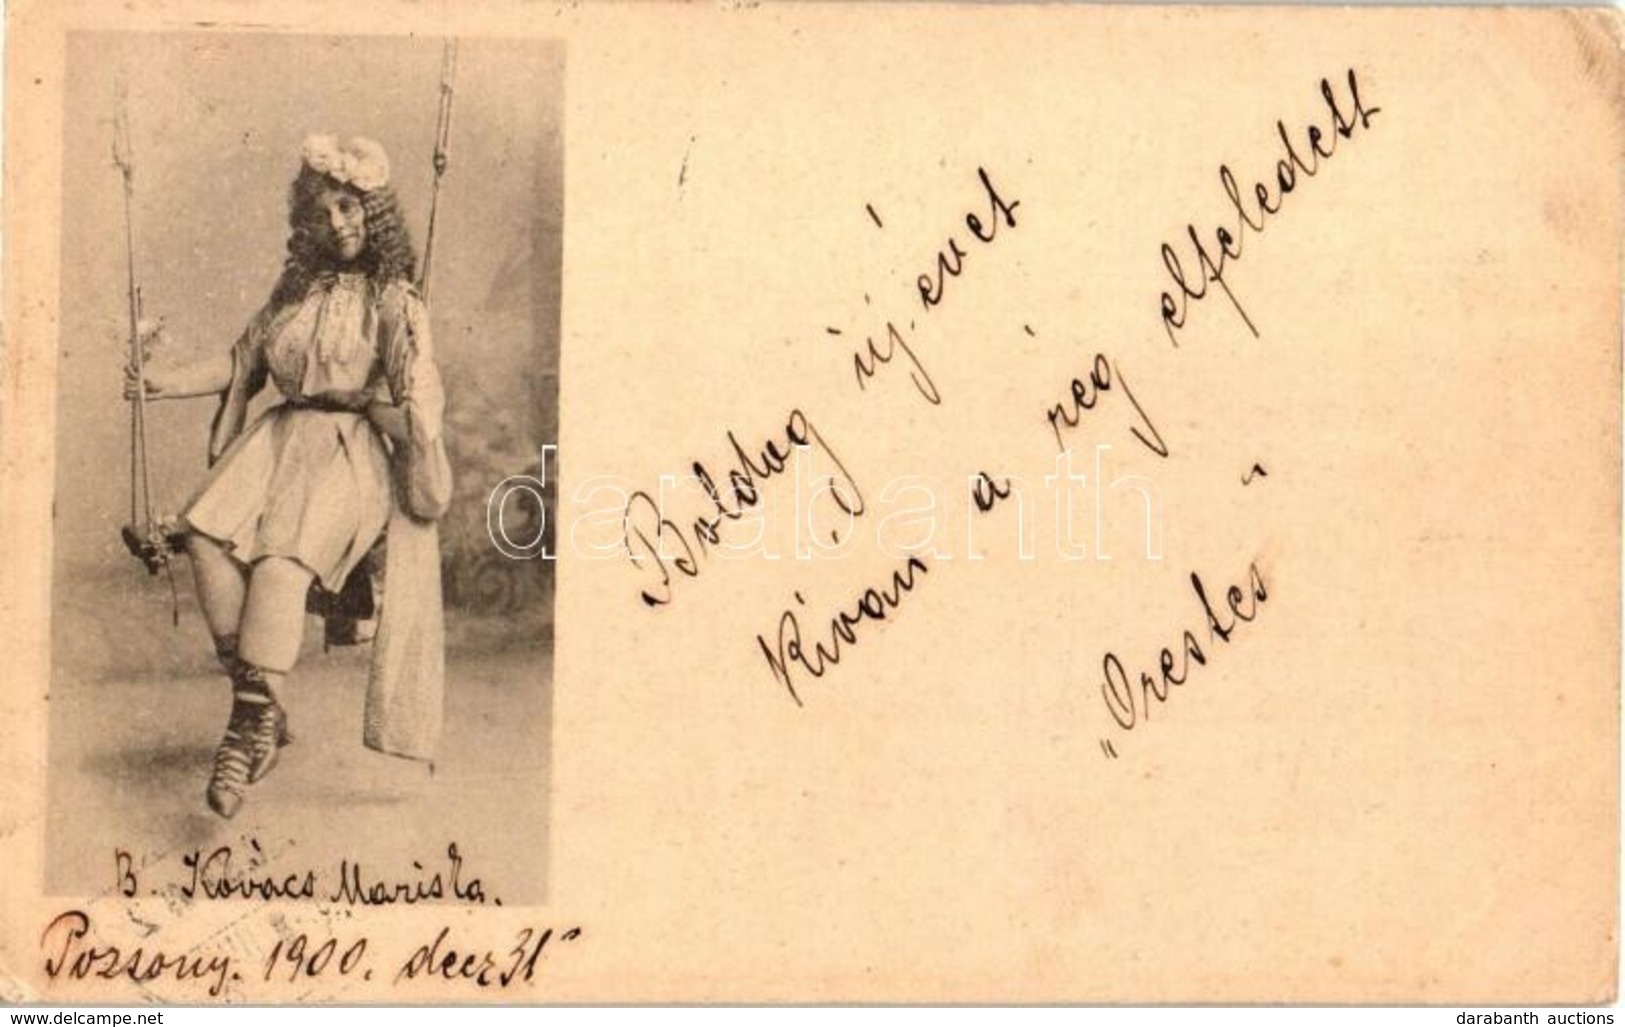 Boldog új evet
Kívan a rég elfeledett
„Orestes"
B. Kovács Mariska.
Pozsony. 1900. decz 31"
darabanth
www.delcampe.net
darabanth auctions